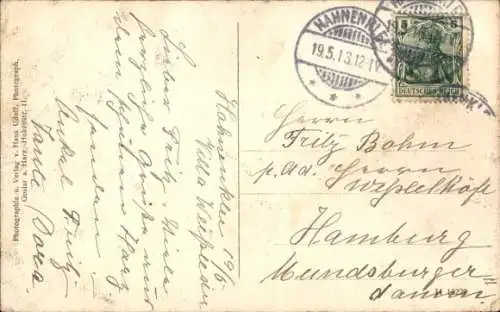 Hahnenklee 19/5
Villa
Lieber Fritz. Viele
herzliche Grüsse aus
dem schönen Harz
senden
Onkel Fritz
Tante Dora
Photographie u. Verlag v. Hans Photograph.
Goslar a. Harz.
HAHNENKLEE
19.5.13.12-1
5 5
DEUTSCHES REICH
Herrn
Fritz Bohm
p. Ad. Herrn
Hamburg
Mundsburger-
damm